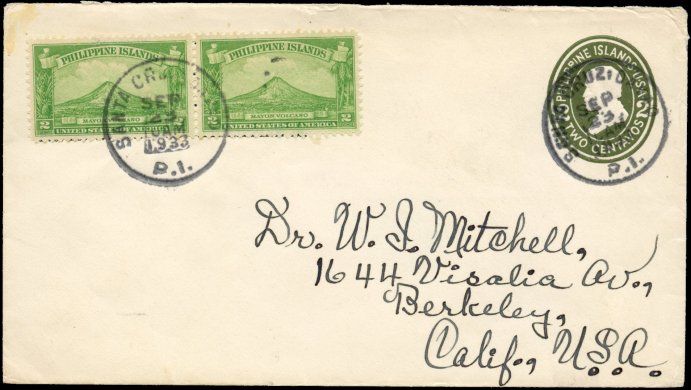 PHILIPPINE ISLANDS
MAYON VOLCANO
2 2
UNITED STATES OF AMERICA
PHILIPPINE ISLANDS
MAYON VOLCANO
2 2
UNITED STATES OF AMERICA
SANTA CRUZ
SEP
23
AM
1933
P.I.
PHILIPPINE ISLANDS U.S.A.
2
TWO CENTAVOS
SEP
23
AM
P.I.
Dr. W. I. Mitchell,
1644 Visalia Av.,
Berkeley,
Calif., U.S.A.